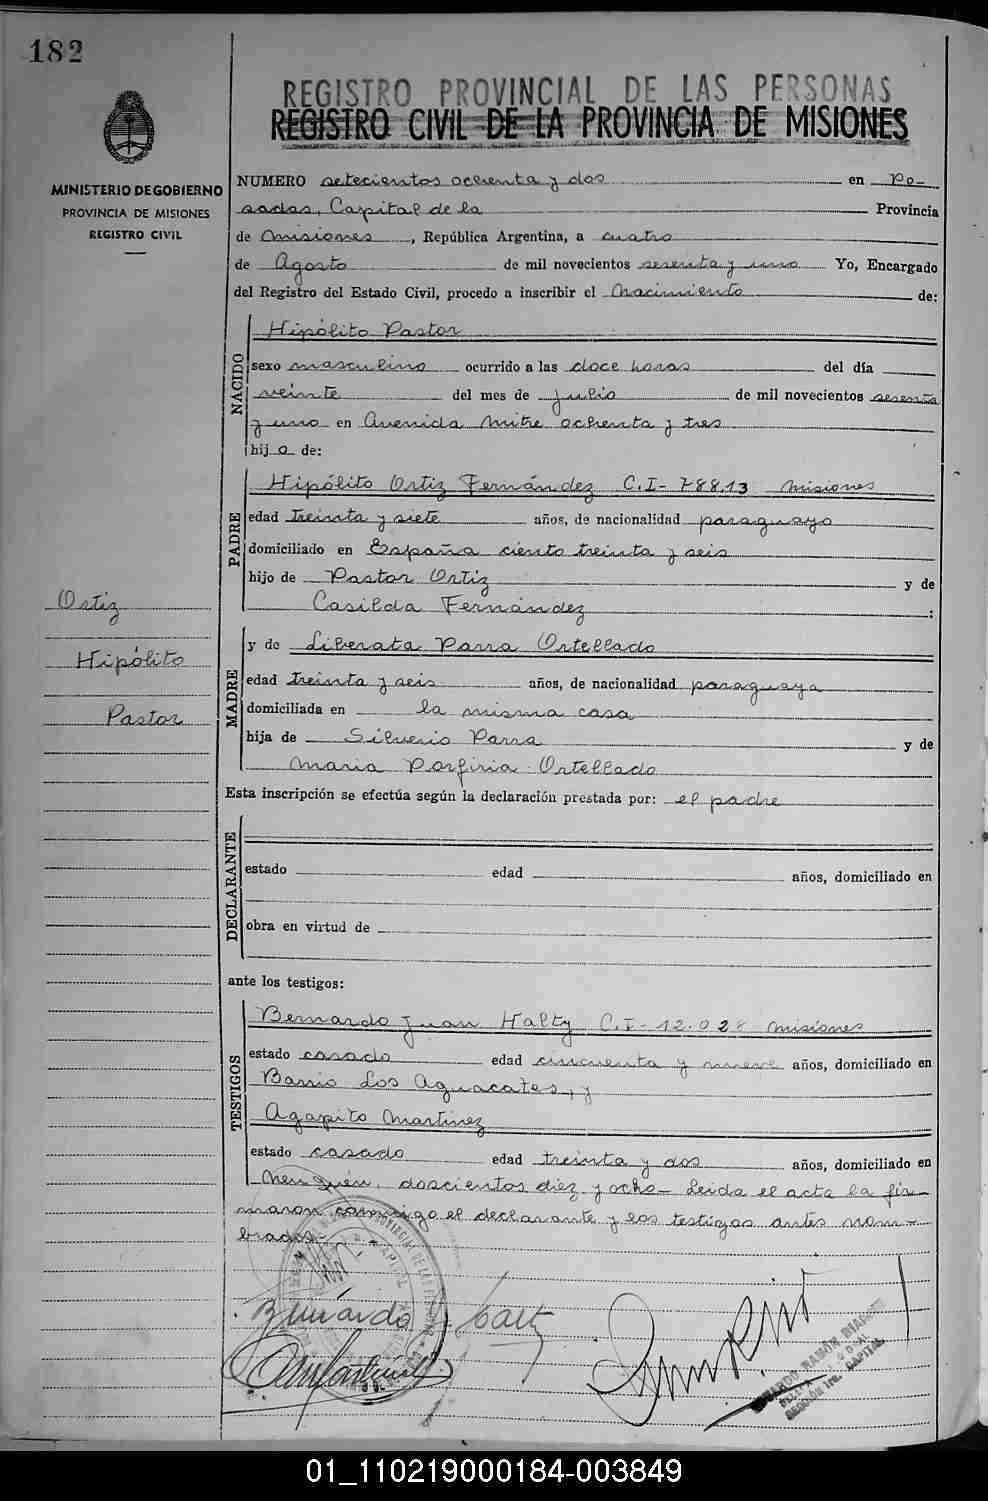 182
REGISTRO PROVINCIAL DE LAS PERSONAS
REGISTRO CIVIL DE LA PROVINCIA DE MISIONES
MINISTERIO DE GOBIERNO
PROVINCIA DE MISIONES
REGISTRO CIVIL
NUMERO setecientos ochenta y dos en Po-
sadas, Capital de la Provincia
de Misiones, República Argentina, a cuatro
de Agosto de mil novecientos sesenta y uno Yo, Encargado
del Registro del Estado Civil, procedo a inscribir el Nacimiento de:
NACIDO
Hipólito Pastor
sexo masculino ocurrido a las doce horas del día
veinte del mes de julio de mil novecientos sesenta
y uno en Avenida Mitre ochenta y tres
hijo de:
PADRE
Hipólito Ortiz Fernández C.I- 788.13 Misiones
edad treinta y siete años, de nacionalidad paraguayo
domiciliado en España ciento treinta y seis
hijo de Pastor Ortiz y de
Casilda Fernández :
Ortiz
Hipólito
Pastor
MADRE
y de Liberata Parra Ortellado
edad treinta y seis años, de nacionalidad paraguaya
domiciliada en la misma casa
hija de Silverio Parra y de
Maria Porfiria Ortellado
Esta inscripción se efectúa según la declaración prestada por: el padre
DECLARANTE
estado edad años, domiciliado en
obra en virtud de
ante los testigos:
TESTIGOS
Bernardo Juan Halty C.I- 12.028 Misiones
estado casado edad cincuenta y nueve años, domiciliado en
Barrio Los Aguacates, y
Agapito Martinez
estado casado edad treinta y dos años, domiciliado en
Neuquén, doscientos diez y ocho- Leida el acta la fir-
maron conmigo el declarante y los testigos antes nom-
brados-
Bernardo J. Halty
RAMÓN
CAPITAL
01_110219000184-003849